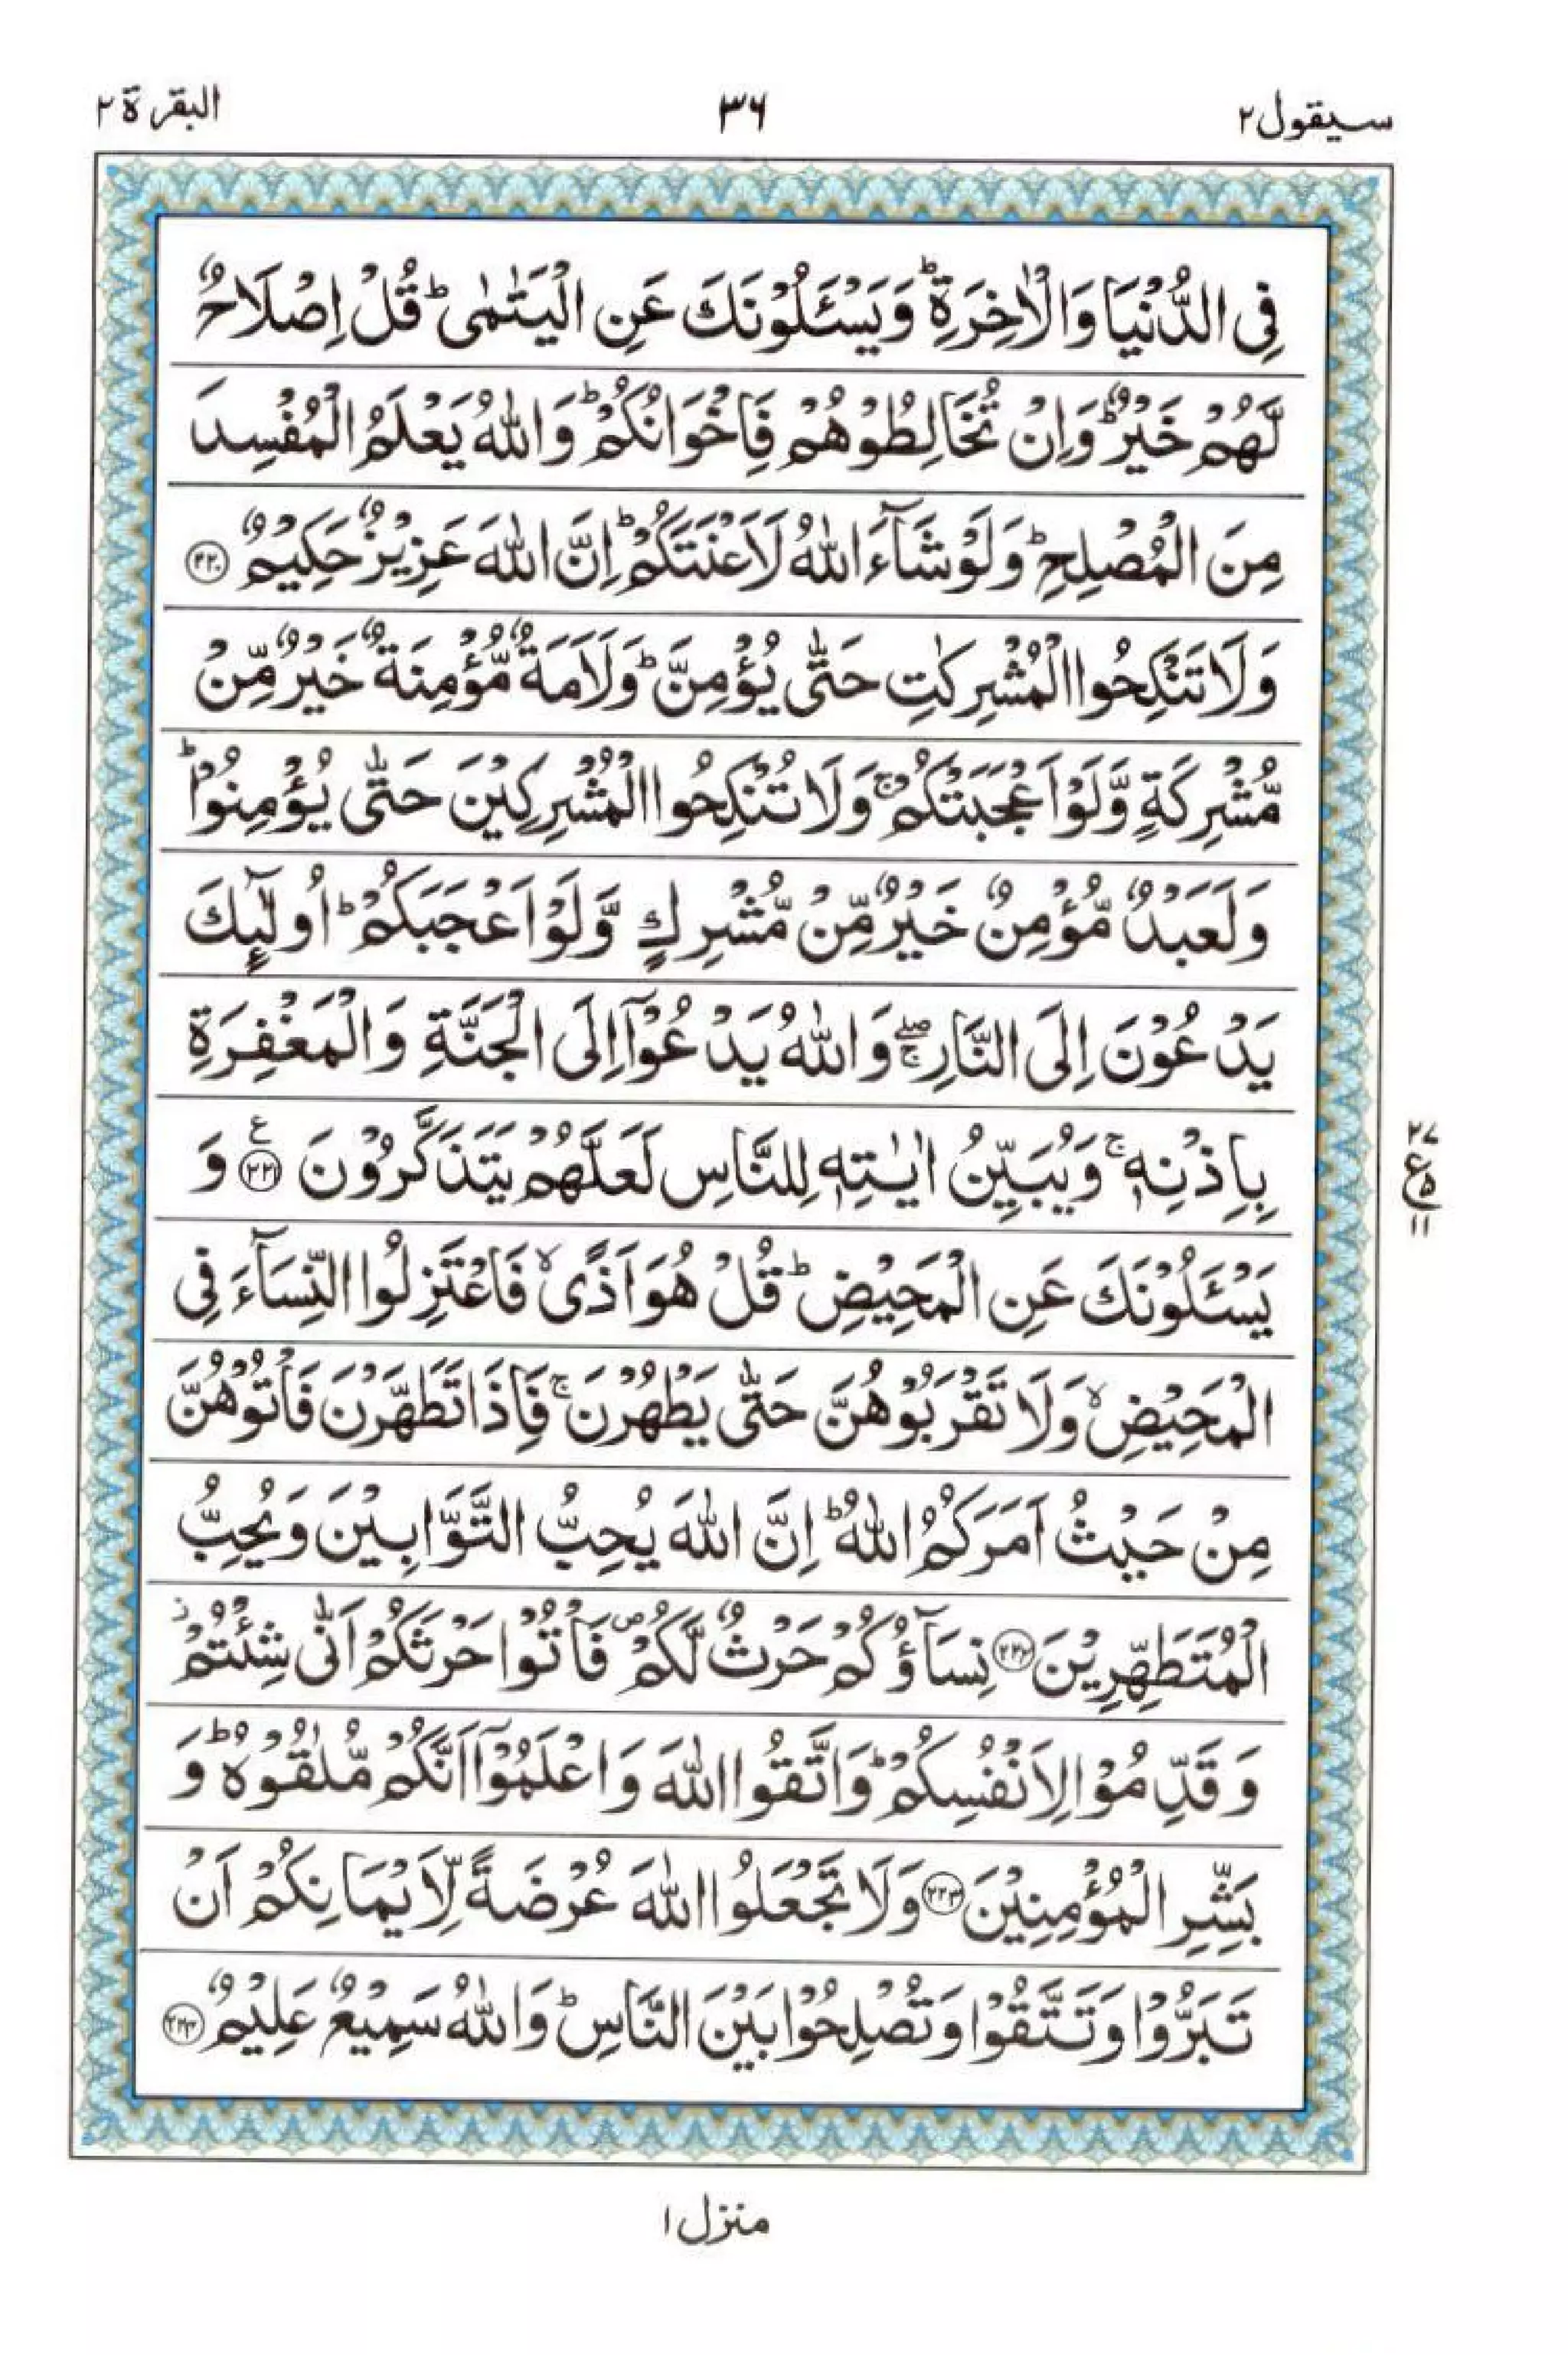 سيقول ٢
٣٦
البقرة ٢
فِى الدُّنْيَا وَالْاٰخِرَةِ ؕ وَيَسْـَٔلُوْنَكَ عَنِ الْيَتٰمٰى ؕ قُلْ اِصْلَاحٌ
لَّهُمْ خَيْرٌ ؕ وَاِنْ تُخَالِطُوْهُمْ فَاِخْوَانُكُمْ ؕ وَاللّٰهُ يَعْلَمُ الْمُفْسِدَ
مِنَ الْمُصْلِحِ ؕ وَلَوْ شَآءَ اللّٰهُ لَاَعْنَتَكُمْ ؕ اِنَّ اللّٰهَ عَزِيْزٌ حَكِيْمٌ ﴿۲۲۰﴾
وَلَا تَنْكِحُوا الْمُشْرِكٰتِ حَتّٰى يُؤْمِنَّ ؕ وَلَاَمَةٌ مُّؤْمِنَةٌ خَيْرٌ مِّنْ
مُّشْرِكَةٍ وَّلَوْ اَعْجَبَتْكُمْ ۚ وَلَا تُنْكِحُوا الْمُشْرِكِيْنَ حَتّٰى يُؤْمِنُوْا ؕ
وَلَعَبْدٌ مُّؤْمِنٌ خَيْرٌ مِّنْ مُّشْرِكٍ وَّلَوْ اَعْجَبَكُمْ ؕ اُولٰٓئِكَ
يَدْعُوْنَ اِلَى النَّارِ ۖۚ وَاللّٰهُ يَدْعُوْٓا اِلَى الْجَنَّةِ وَالْمَغْفِرَةِ
بِاِذْنِهٖ ۚ وَيُبَيِّنُ اٰيٰتِهٖ لِلنَّاسِ لَعَلَّهُمْ يَتَذَكَّرُوْنَ ﴿۲۲۱﴾ ع وَ
٢٧
ع ٥
١١
يَسْـَٔلُوْنَكَ عَنِ الْمَحِيْضِ ؕ قُلْ هُوَ اَذًى ۙ فَاعْتَزِلُوا النِّسَآءَ فِى
الْمَحِيْضِ ۙ وَلَا تَقْرَبُوْهُنَّ حَتّٰى يَطْهُرْنَ ۚ فَاِذَا تَطَهَّرْنَ فَاْتُوْهُنَّ
مِنْ حَيْثُ اَمَرَكُمُ اللّٰهُ ؕ اِنَّ اللّٰهَ يُحِبُّ التَّوَّابِيْنَ وَيُحِبُّ
الْمُتَطَهِّرِيْنَ ﴿۲۲۲﴾ نِسَآؤُكُمْ حَرْثٌ لَّكُمْ ۪ فَاْتُوْا حَرْثَكُمْ اَنّٰى شِئْتُمْ ز
وَقَدِّمُوْا لِاَنْفُسِكُمْ ؕ وَاتَّقُوا اللّٰهَ وَاعْلَمُوْٓا اَنَّكُمْ مُّلٰقُوْهُ ؕ وَ
بَشِّرِ الْمُؤْمِنِيْنَ ﴿۲۲۳﴾ وَلَا تَجْعَلُوا اللّٰهَ عُرْضَةً لِّاَيْمَانِكُمْ اَنْ
تَبَرُّوْا وَتَتَّقُوْا وَتُصْلِحُوْا بَيْنَ النَّاسِ ؕ وَاللّٰهُ سَمِيْعٌ عَلِيْمٌ ﴿۲۲۴﴾
منزل ١